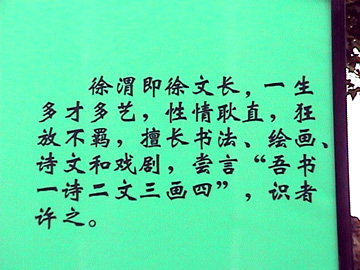 徐渭即徐文长，一生
多才多艺，性情耿直，狂
放不羁，擅长书法、绘画、
诗文和戏剧，尝言“吾书
一诗二文三画四”，识者
许之。